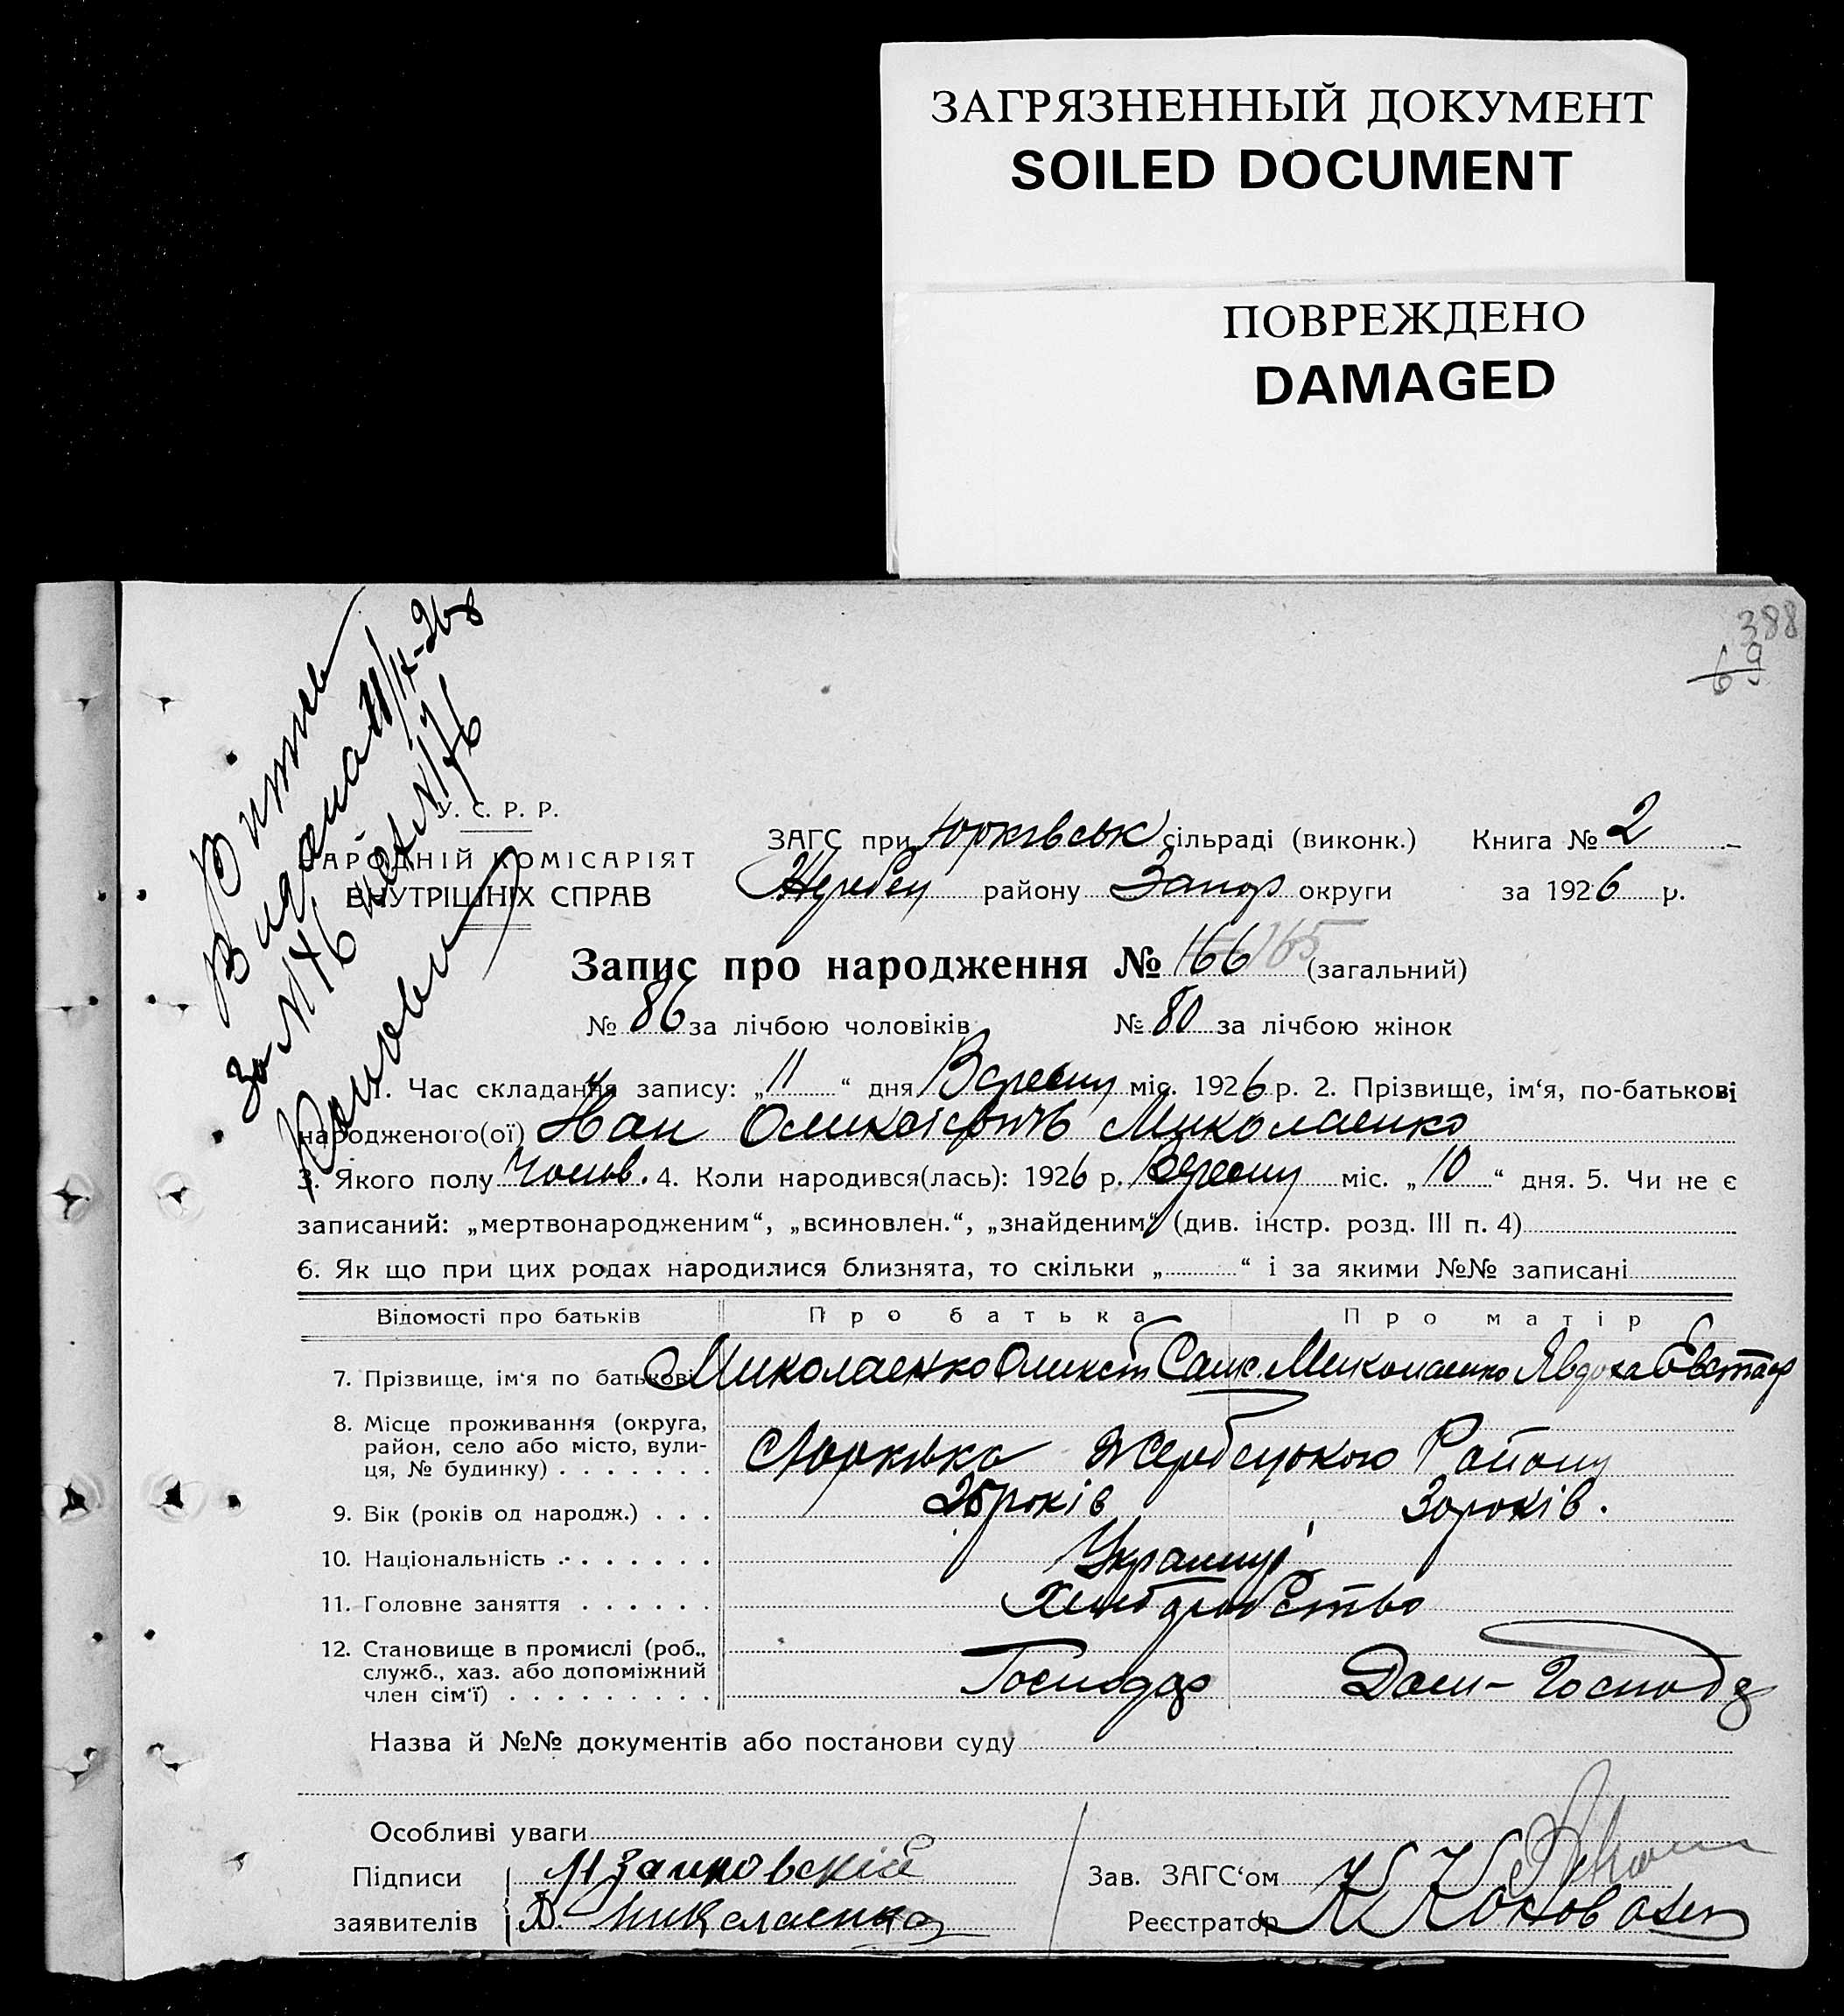 ЗАГРЯЗНЕННЫЙ ДОКУМЕНТ
SOILED DOCUMENT
ПОВРЕЖДЕНО
DAMAGED
388
69
Витяг
Видана 11/IX-26 р
За № 176
Коновал
У. С. Р. Р.
НАРОДНІЙ КОМІСАРІЯТ
ВНУТРІШНІХ СПРАВ
ЗАГС при Юрківськ сільраді (виконк.) Книга № 2
Жеребец району Запор округи за 1926 р.
Запис про народження № 166 165 (загальний)
№ 86 за лічбою чоловіків № 80 за лічбою жінок
1. Час складання запису: „11“ дня Вересня міс. 1926 р. 2. Прізвище, ім'я, по-батькові
народженого(ої) Іван Олексієвичь Миколаенко
3. Якого полу Чолов. 4. Коли народився(лась): 1926 р. Вересня міс. „10“ дня. 5. Чи не є
записаний: „мертвонародженим“, „всиновлен.“, „знайденим“ (див. інстр. розд. III п. 4)
6. Як що при цих родах народилися близнята, то скільки „ “ і за якими №№ записані
Відомості про батьків Про батька Про матір
7. Прізвище, ім'я по батькові Миколаенко Олексій Миколаенко Явдоха Евстаф
8. Місце проживання (округа,
район, село або місто, вули-
ця, № будинку) Юрківка Жеребецького Району
9. Вік (років од народж.) 25 років 30 років.
10. Національність Українці
11. Головне заняття Хлібороб ство
12. Становище в промислі (роб.,
служб., хаз. або допоміжний
член сім'ї) Господар Дом-Господ
Назва й №№ документів або постанови суду
Особливі уваги
Підписи
заявителів А. Миколаенко
Зав. ЗАГС'ом
Реєстратор К Коновал